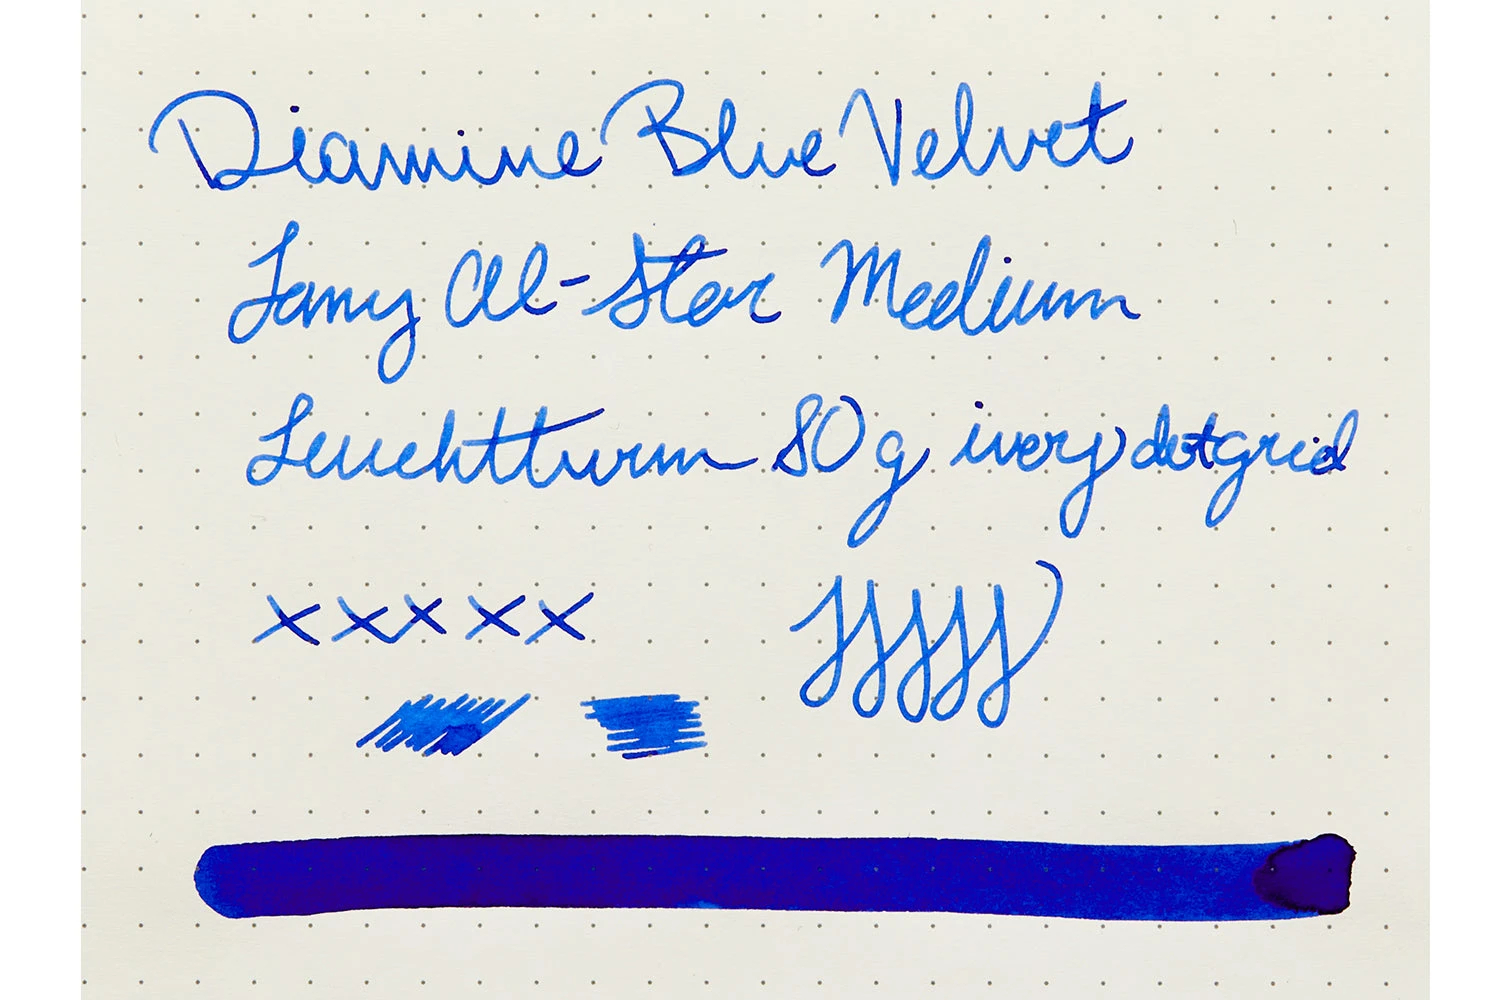 Diamine Blue Velvet
Lamy Al-Star Medium
Leuchtturm 80g ivory dotgrid
x x x x x